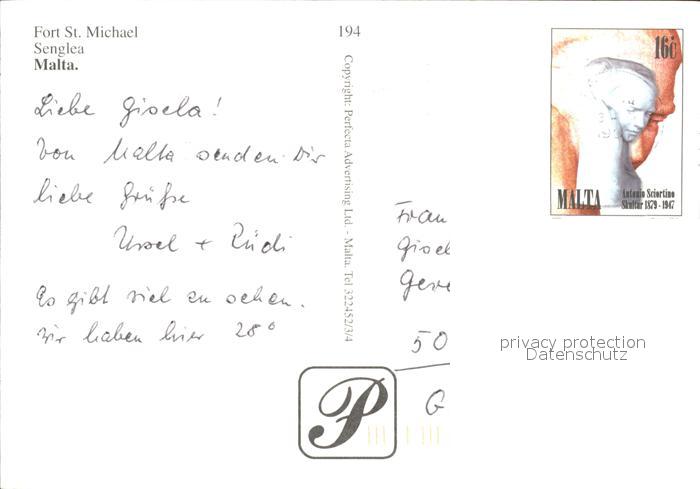 Fort St. Michael
Senglea
Malta.
194
Copyright: Perfecta Advertising Ltd. - Malta. Tel 322452/3/4
16c
MALTA
Antonio Sciortino
Skultur 1879 - 1947
Liebe Gisela!
Von Malta senden Dir
liebe Grüße
Ursel + Rüdi
Es gibt viel zu sehen.
Wir haben hier 28°
Frau
Gisel
50
G
P
privacy protection
Datenschutz